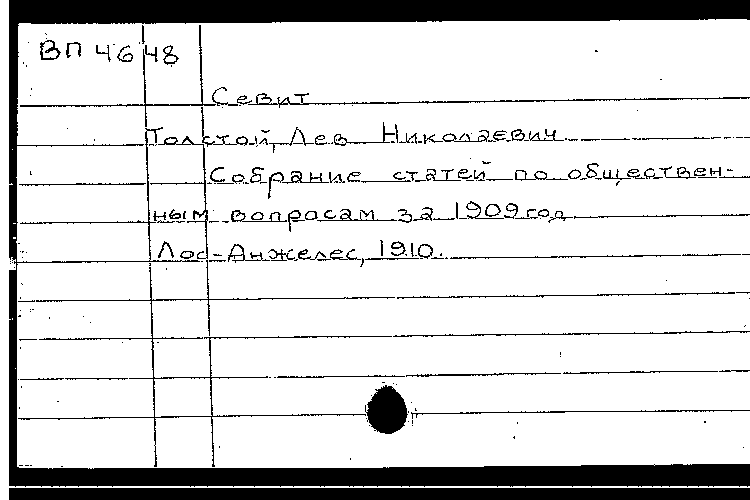 ВП 4648
Севит
Толстой, Лев Николаевич
Собрание статей по обществен-
ным вопросам за 1909 год.
Лос-Анжелес, 1910.